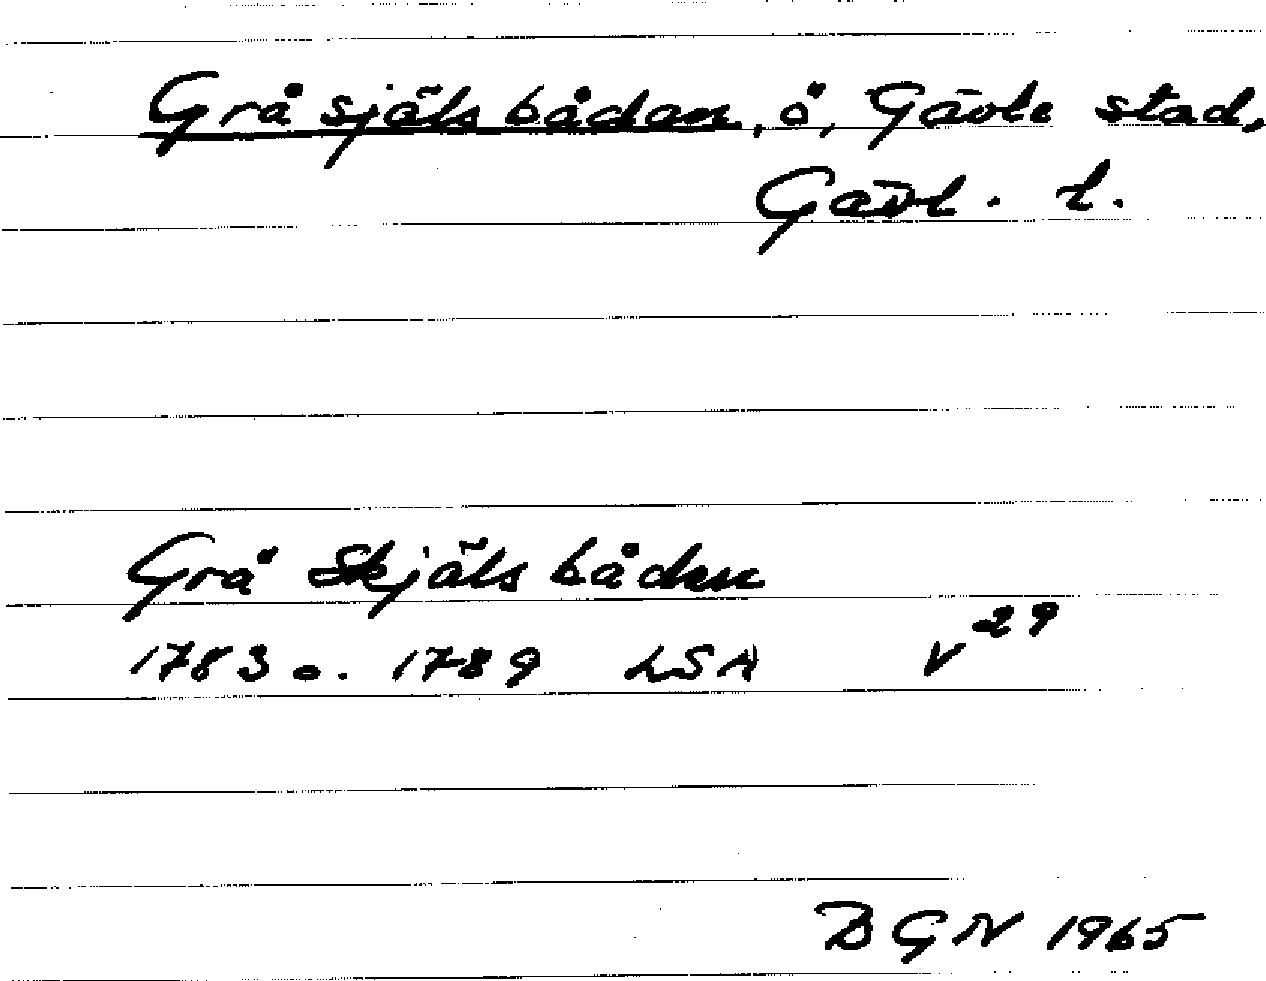 Gråsjälsbådan, ö, Gävle stad,
Gävl. l.
Grå Skjälsbåden
1783 o. 1789 LSA V29
BGN 1965